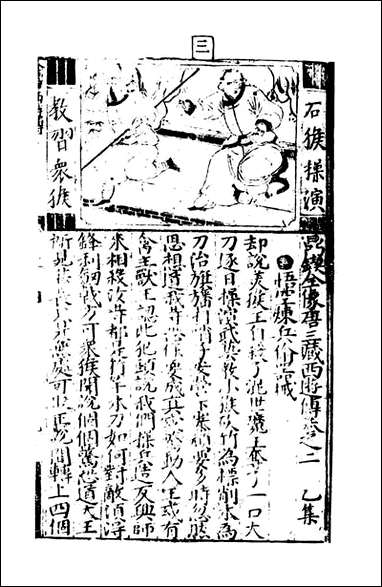 三
石猴操演
教習衆猴
鼎鍥全像唐三藏西遊傳卷之二 乙集
悟空煉兵偷器械
却說美猴王自殺了混世魔王奪了一口大
刀逐日操演武藝教小猴砍竹為標削木為
刀治旗旛打哨子安營下寨頑耍多時忽然
思想道我等在作耍成真或驚動人王或有
禽王獸王認此犯頭說我們操兵造反興師
來相殺汝等都是竹竿木刀如何對敵須得
鋒利劍戟方可衆猴聞說個個驚恐道大王
所見甚長只是無處可取正說間轉上四個